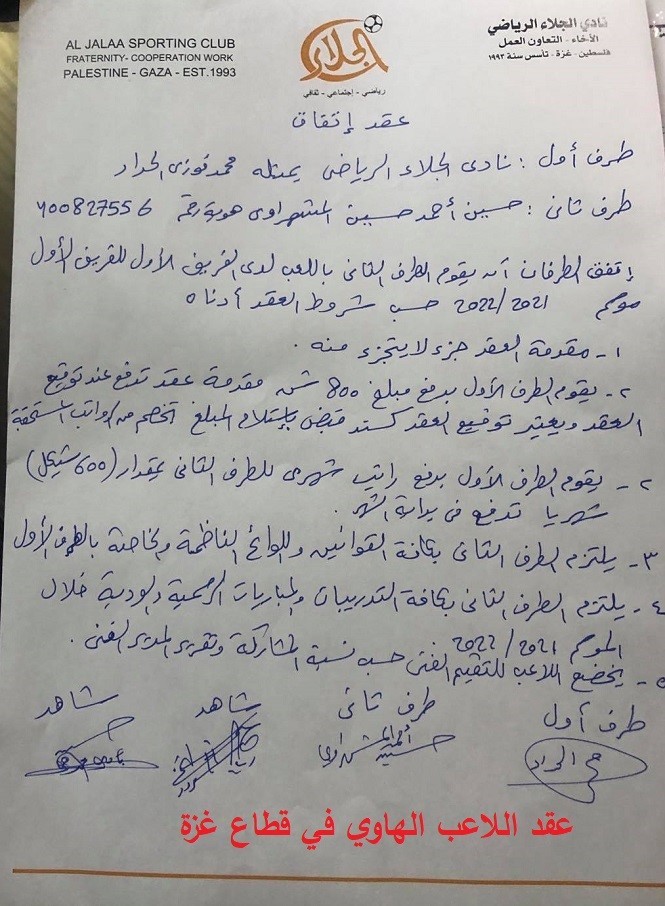 AL JALAA SPORTING CLUB
FRATERNITY- COOPERATION WORK
PALESTINE - GAZA - EST.1993
الجلاء
رياضي - إجتماعي - ثقافي
نادي الجلاء الرياضي
الأخاء - التعاون العمل
فلسطين - غزة - تأسس سنة ١٩٩٣
عقد إتفاق
طرف أول : نادى الجلاء الرياضى يمثله محمد فوزى الحداد
طرف ثانى : حسين أحمد حسين المشهراوى هوية رقم 400827556
إتفق الطرفان أن يقوم الطرف الثانى باللعب لدى الفريق الأول للفريق الأول
موسم 2022/2021 حسب شروط العقد أدناه
١- مقدمة العقد جزء لا يتجزء منه .
٢- يقوم الطرف الأول بدفع مبلغ 800 ش مقدمة عقد تدفع عند توقيع
العقد ويعتبر توقيع العقد كسند قبض بإستلام المبلغ تخصم من الرواتب المستحقة
٢- يقوم الطرف الأول بدفع راتب شهرى للطرف الثانى بمقدار (600 شيكل)
شهريا تدفع فى بداية الشهر .
٣- يلتزم الطرف الثانى بكافة القوانين واللوائح الناظمة والخاصة بالطرف الأول
٤- يلتزم الطرف الثانى بكافة التدريبات والمباريات الرسمية والودية خلال
الموسم 2022/2021 .
٥- يخضع اللاعب للتقيم الفنى حسب نسبة المشاركة وتقرير المدير الفنى .
طرف أول
طرف ثانى
شاهد
شاهد
الحداد
عقد اللاعب الهاوي في قطاع غزة